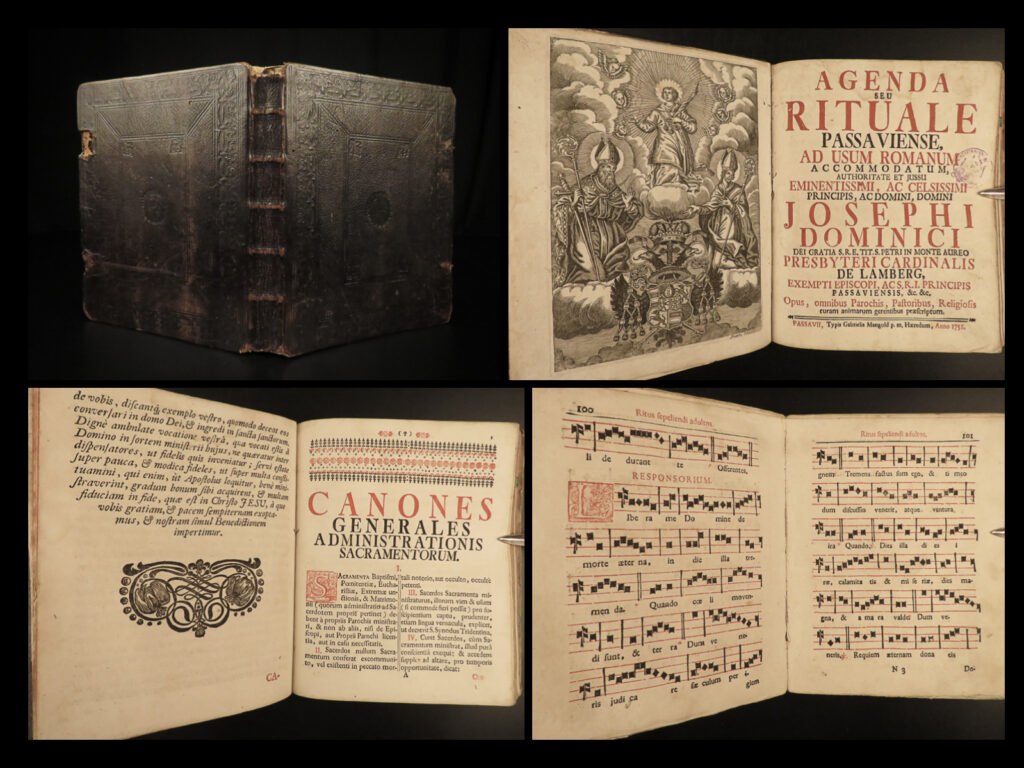 AGENDA
SEU
RITUALE
PASSAVIENSE,
AD USUM ROMANUM
ACCOMMODATUM,
AUTHORITATE ET JUSSU
EMINENTISSIMI, AC CELSISSIMI
PRINCIPIS, AC DOMINI, DOMINI
JOSEPHI
DOMINICI
DEI GRATIA S.R.E. TIT. S. PETRI IN MONTE AUREO
PRESBYTERI CARDINALIS
DE LAMBERG,
EXEMPTI EPISCOPI, AC S.R.I. PRINCIPIS
PASSAVIENSIS, &c. &c.
Opus, omnibus Parochis, Pastoribus, Religiosis
curam animarum gerentibus præscriptum.
PASSAVII, Typis Gabrielis Mangold p. m. Hæredum, Anno
de vobis, discantq; exemplo vestro, quomodo deceat eos
conversari in domo Dei, & ingredi in sancta sanctorum.
Dignè ambulate vocatione vestrâ, quâ vocati estis à
Domino in sortem ministerii hujus, ne quæratur inter
dispensatores, ut fidelis quis inveniatur; servi estote
super pauca, & modica fideles, ut super multa consti-
tuamini, qui enim, ut Apostolus loquitur, benè mini-
straverint, gradum bonum sibi acquirent, & multam
fiduciam in fide, quæ est in Christo JESU, à quo
vobis gratiam, & pacem sempiternam exopta-
mus, & nostram simul Benedictionem
impertimur.
CA-
(?)
CANONES
GENERALES
ADMINISTRATIONIS
SACRAMENTORUM.
I.
SAcramenta Baptismi,
Pœnitentiæ, Eucha-
ristiæ, Extremæ un-
ctionis, & Matrimo-
nii (quorum administratio ad Sa-
cerdotem propriè pertinet) de-
bent à propriis Parochis ministra-
ri, & non ab aliis, nisi de Epi-
scopi, aut Proprii Parochi licen-
tia, aut in casu necessitatis.
II. Sacerdos nullum Sacra-
mentum conferat excommuni-
to, vel existenti in peccato mor-
tali notorio, aut occulto, occultè
petenti.
III. Sacerdos Sacramenta mi-
nistraturus, illorum vim & usum
(si commodè fieri possit) pro su-
scipientium captu, prudenter,
etiam lingua vernacula, explicet,
ut decrevit S. Synodus Tridentina.
IV. Curet Sacerdos, cùm Sa-
cramentum ministrat, illud purâ
conscientiâ exequi: & accedens
supplex ad altare, pro temporis
opportunitate, dicat:
A
100
Ritus sepeliendi adultos.
li de ducant te Offerentes.
RESPONSORIUM.
LIbe ra me Do mine de
morte æter na, in die illa tre-
men da. Quando cœ li moven-
di sunt, & ter ra Dum ve ni-
ris judi ca re sæ culum per i-
gnem
Ritus sepeliendi adultos.
101
gnem Tremens factus sum ego, & ti meo
dum discussio venerit, atque ventura,
ira Quando. Dies illa di es i
ræ, calamita tis & mi se riæ, dies ma-
gna, & a ma ra valde: Dum ve-
neris. Requiem æternam dona eis
N 3
Do-